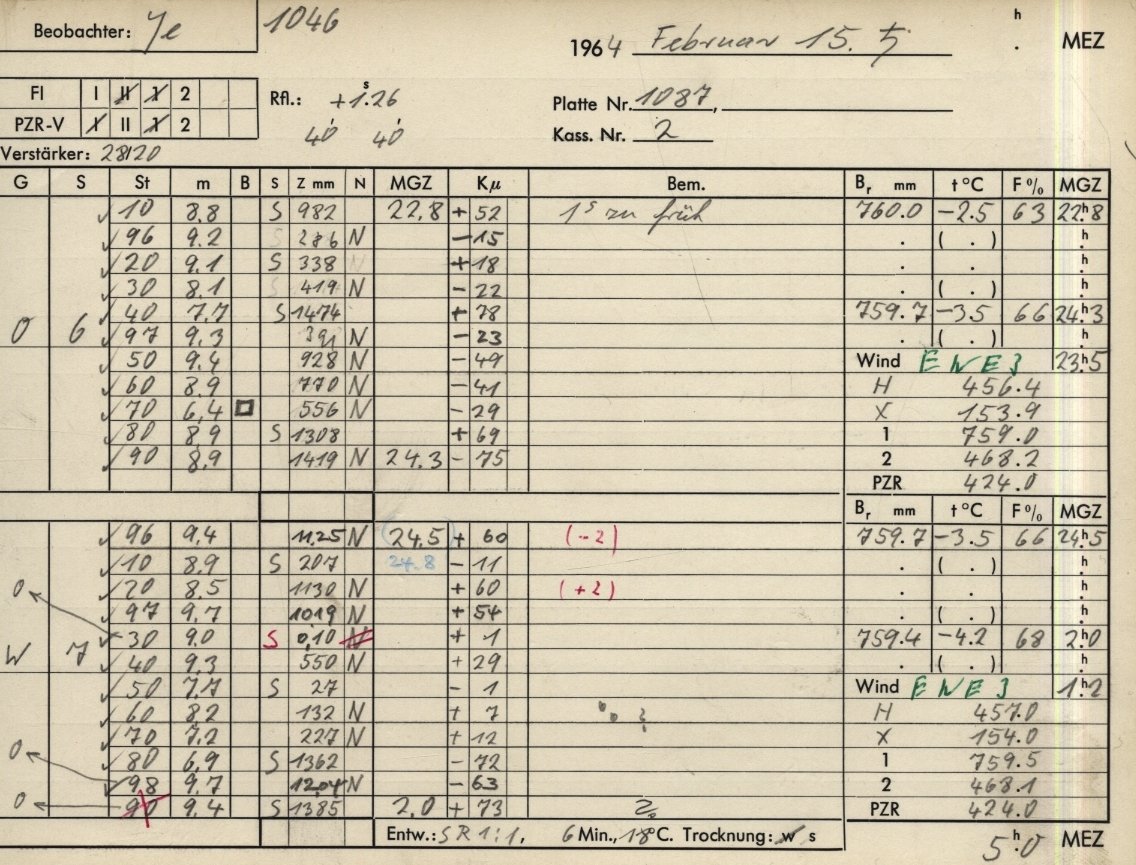 Beobachter: Je 1046
1964 Februar 15. ♄ h . MEZ
FI I II 1 2 Rfl.: +1.26 s Platte Nr. 1087,
PZR-V I II 1 2 40 40 Kass. Nr. 2
Verstärker: 28/20
G S St m B S Z mm N MGZ Kμ Bem. Br mm t °C F % MGZ
✓ 10 8.8 S 982 22.8 + 52 1s zu früh 760.0 -2.5 63 22h.8
✓ 96 9.2 S 286 N - 15 . ( . ) h.
✓ 20 9.1 S 338 N + 18 . . h.
✓ 30 8.1 S 419 N - 22 . ( . ) h.
✓ 40 7.7 S 1474 + 78 759.7 -3.5 66 24h.3
O 6 ✓ 97 9.3 391 N - 23 . ( . ) h.
✓ 50 9.4 928 N - 49 Wind ENE3 23h.5
✓ 60 8.9 770 N - 41 H 456.4
✓ 70 6.4 □ 556 N - 29 X 153.9
✓ 80 8.9 S 1308 + 69 1 759.0
✓ 90 8.9 1419 N 24.3 - 75 2 468.2
PZR 424.0
Br mm t °C F % MGZ
✓ 96 9.4 1125 N (24.5) + 60 (-2) 759.7 -3.5 66 24h.5
✓ 10 8.9 S 207 24.8 - 11 . ( . ) h.
O ✓ 20 8.5 1130 N + 60 (+2) . . h.
✓ 97 9.7 1019 N + 54 . ( . ) h.
✓ 30 9.0 S 0,10 N + 1 759.4 -4.2 68 2h.0
W 7 ✓ 40 9.3 550 N + 29 . ( . ) h.
✓ 50 7.7 S 27 - 1 Wind ENE3 1h.2
✓ 60 8.2 132 N + 7 H 457.0
✓ 70 7.2 227 N + 12 X 154.0
O ✓ 80 6.9 S 1362 - 72 1 759.5
✓ 98 9.7 1204 N - 63 2 468.1
O 90 9.4 S 1385 2.0 + 73 PZR 424.0
Entw.: SR 1:1, 6 Min., 18°C. Trocknung: w s 5h.0 MEZ